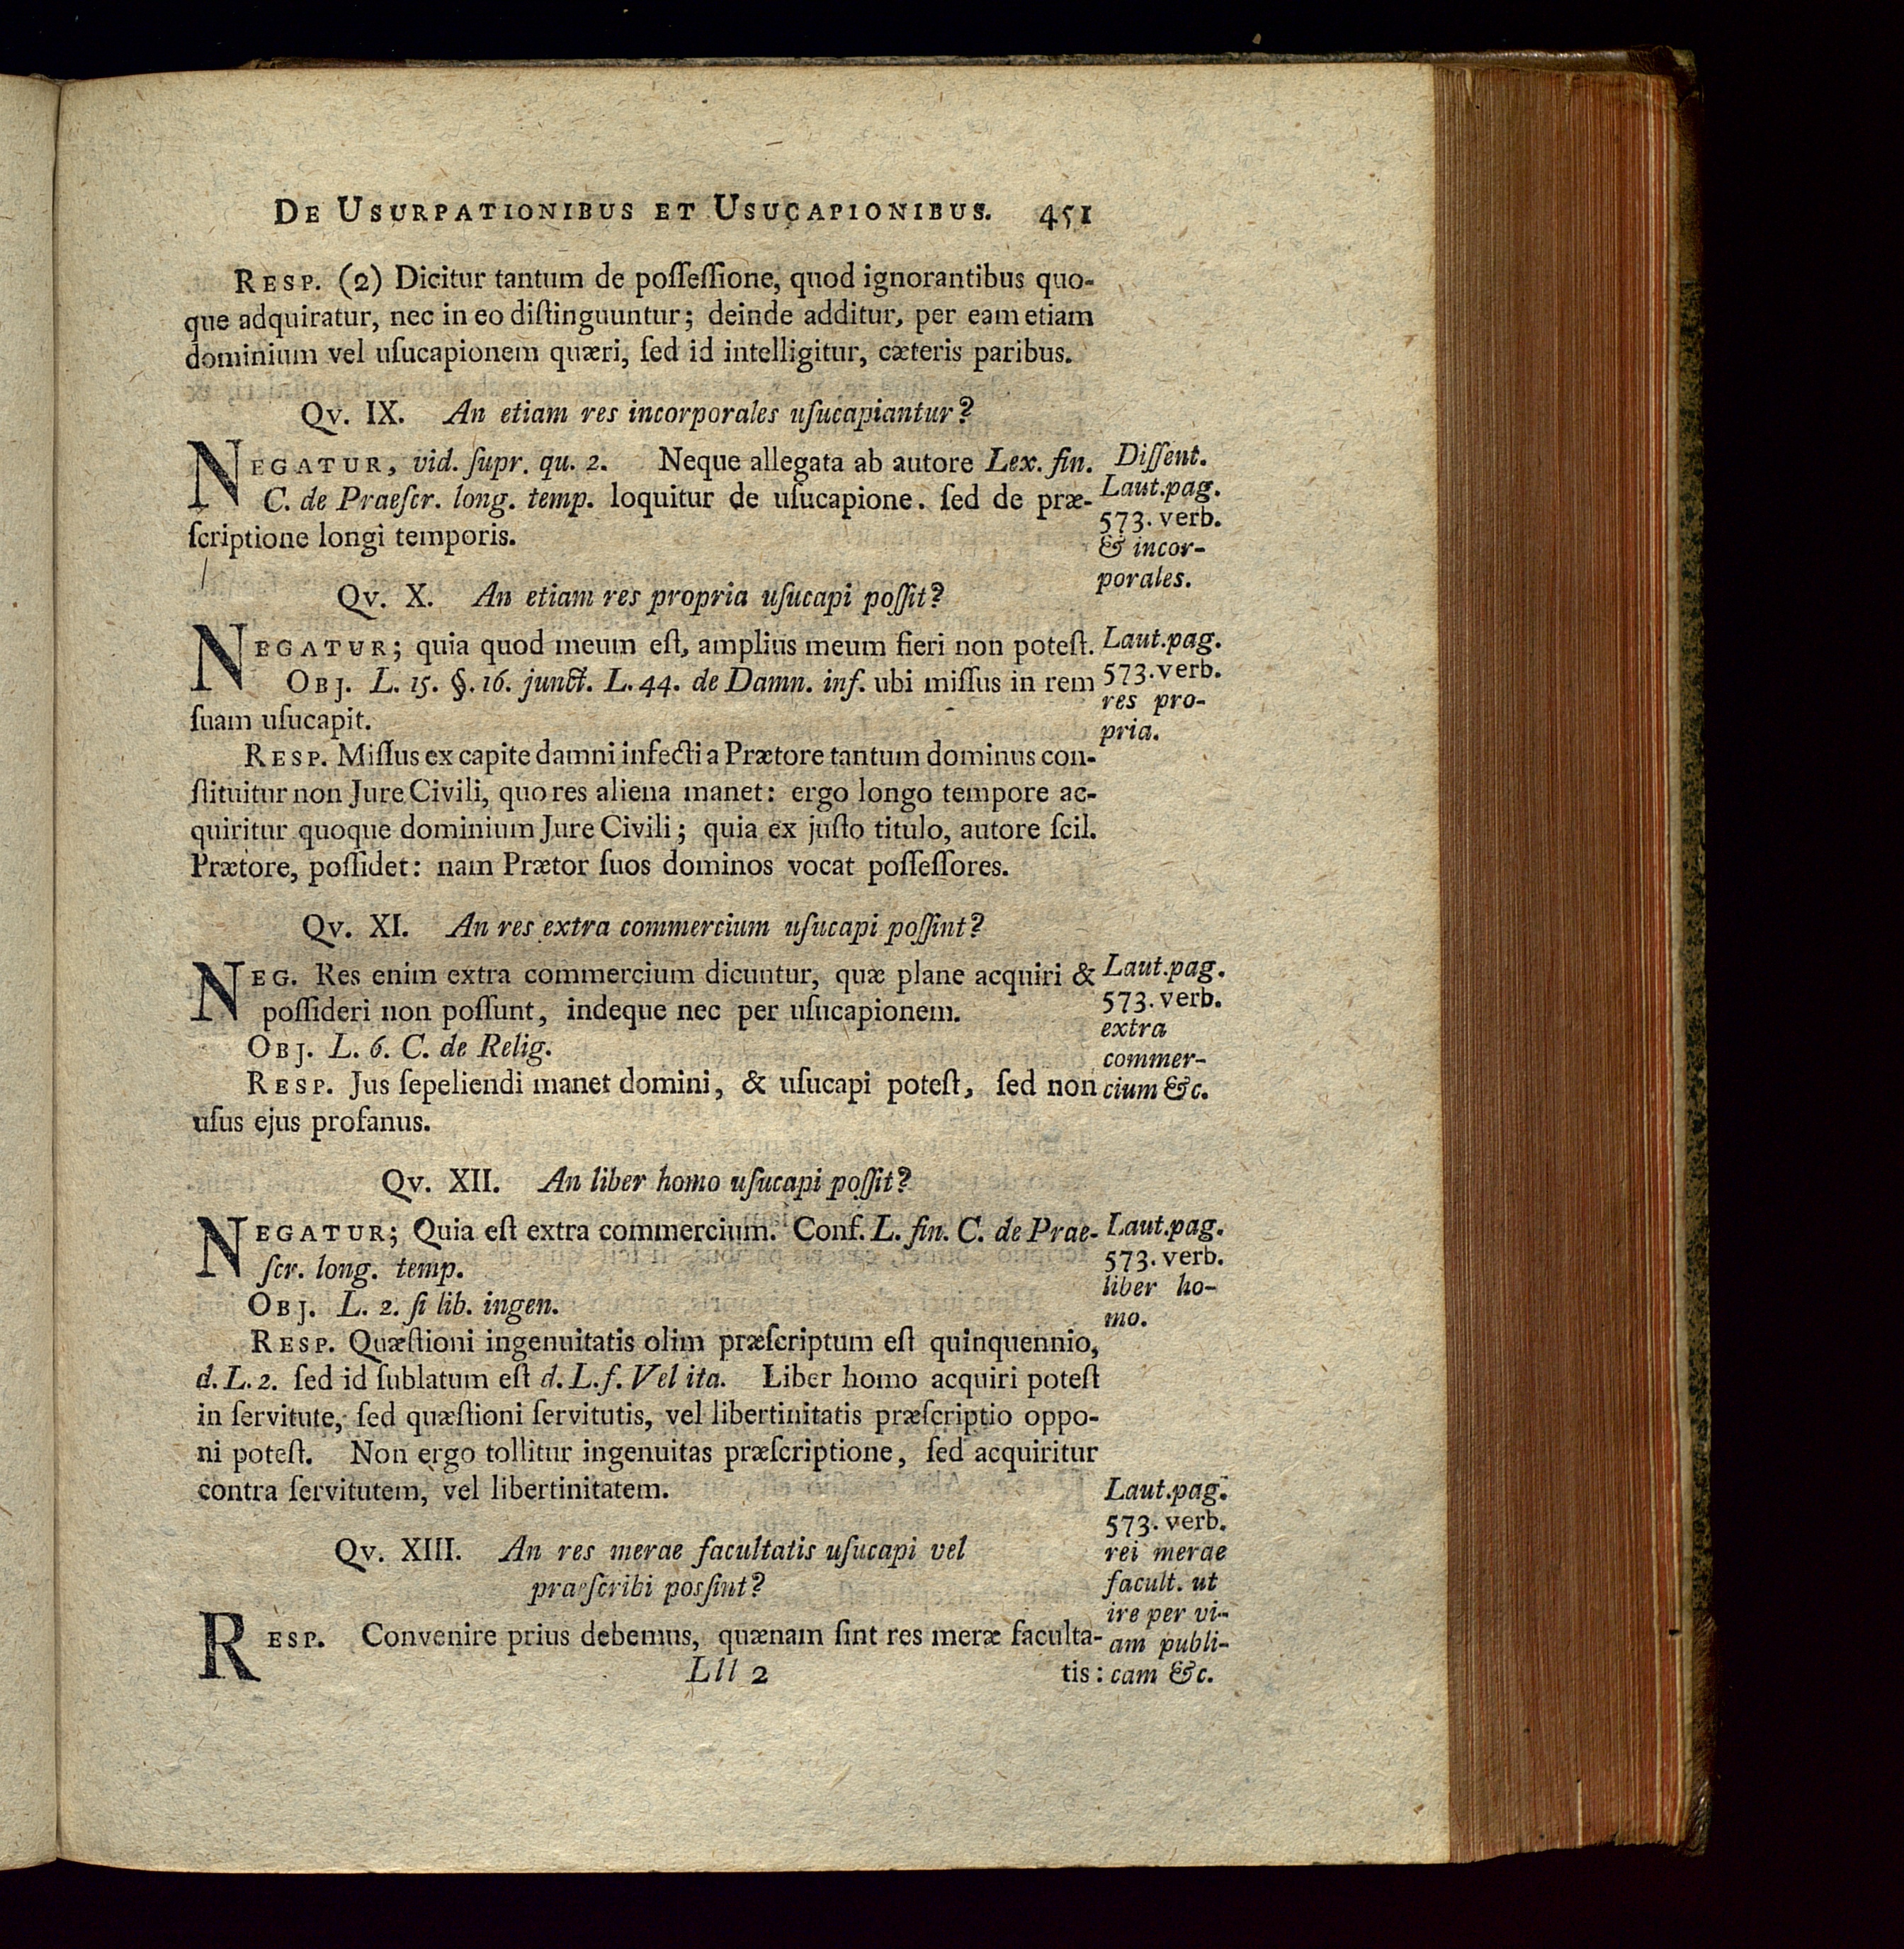 DE USURPATIONIBUS ET USUCAPIONIBUS. 451
RESP. (2) Dicitur tantum de poſſeſſione, quod ignorantibus quo-
que adquiratur, nec in eo diſtinguuntur; deinde additur, per eam etiam
dominium vel uſucapionem quæri, ſed id intelligitur, cæteris paribus.
Qv. IX. An etiam res incorporales uſucapiantur?
NEGATUR, vid. ſupr. qu. 2. Neque allegata ab autore Lex. fin.
C. de Praeſcr. long. temp. loquitur de uſucapione. ſed de præ-
ſcriptione longi temporis.
Diſſent.
Laut. pag.
573. verb.
& incor-
porales.
Qv. X. An etiam res propria uſucapi poſſit?
NEGATUR; quia quod meum eſt, amplius meum fieri non poteſt.
OBJ. L. 15. §. 16. junct. L. 44. de Damn. inf. ubi miſſus in rem
ſuam uſucapit.
Laut. pag.
573. verb.
res pro-
pria.
RESP. Miſſus ex capite damni infecti a Prætore tantum dominus con-
ſtituitur non Jure Civili, quo res aliena manet: ergo longo tempore ac-
quiritur quoque dominium Jure Civili; quia ex juſto titulo, autore ſcil.
Prætore, poſſidet: nam Prætor ſuos dominos vocat poſſeſſores.
Qv. XI. An res extra commercium uſucapi poſſint?
NEG. Res enim extra commercium dicuntur, quæ plane acquiri &
poſſideri non poſſunt, indeque nec per uſucapionem.
OBJ. L. 6. C. de Relig.
RESP. Jus ſepeliendi manet domini, & uſucapi poteſt, ſed non
uſus ejus profanus.
Laut. pag.
573. verb.
extra
commer-
cium &c.
Qv. XII. An liber homo uſucapi poſſit?
NEGATUR; Quia eſt extra commercium. Conf. L. fin. C. de Prae-
ſcr. long. temp.
OBJ. L. 2. ſi lib. ingen.
Laut. pag.
573. verb.
liber ho-
mo.
RESP. Quæſtioni ingenuitatis olim præſcriptum eſt quinquennio,
d. L. 2. ſed id ſublatum eſt d. L. f. Vel ita. Liber homo acquiri poteſt
in ſervitute, ſed quæſtioni ſervitutis, vel libertinitatis præſcriptio oppo-
ni poteſt. Non ergo tollitur ingenuitas præſcriptione, ſed acquiritur
contra ſervitutem, vel libertinitatem.
Qv. XIII. An res merae facultatis uſucapi vel
praeſcribi posſint?
RESP. Convenire prius debemus, quænam ſint res meræ faculta-
Laut. pag.
573. verb.
rei merae
facult. ut
ire per vi-
am publi-
cam &c.
Lll 2 tis: